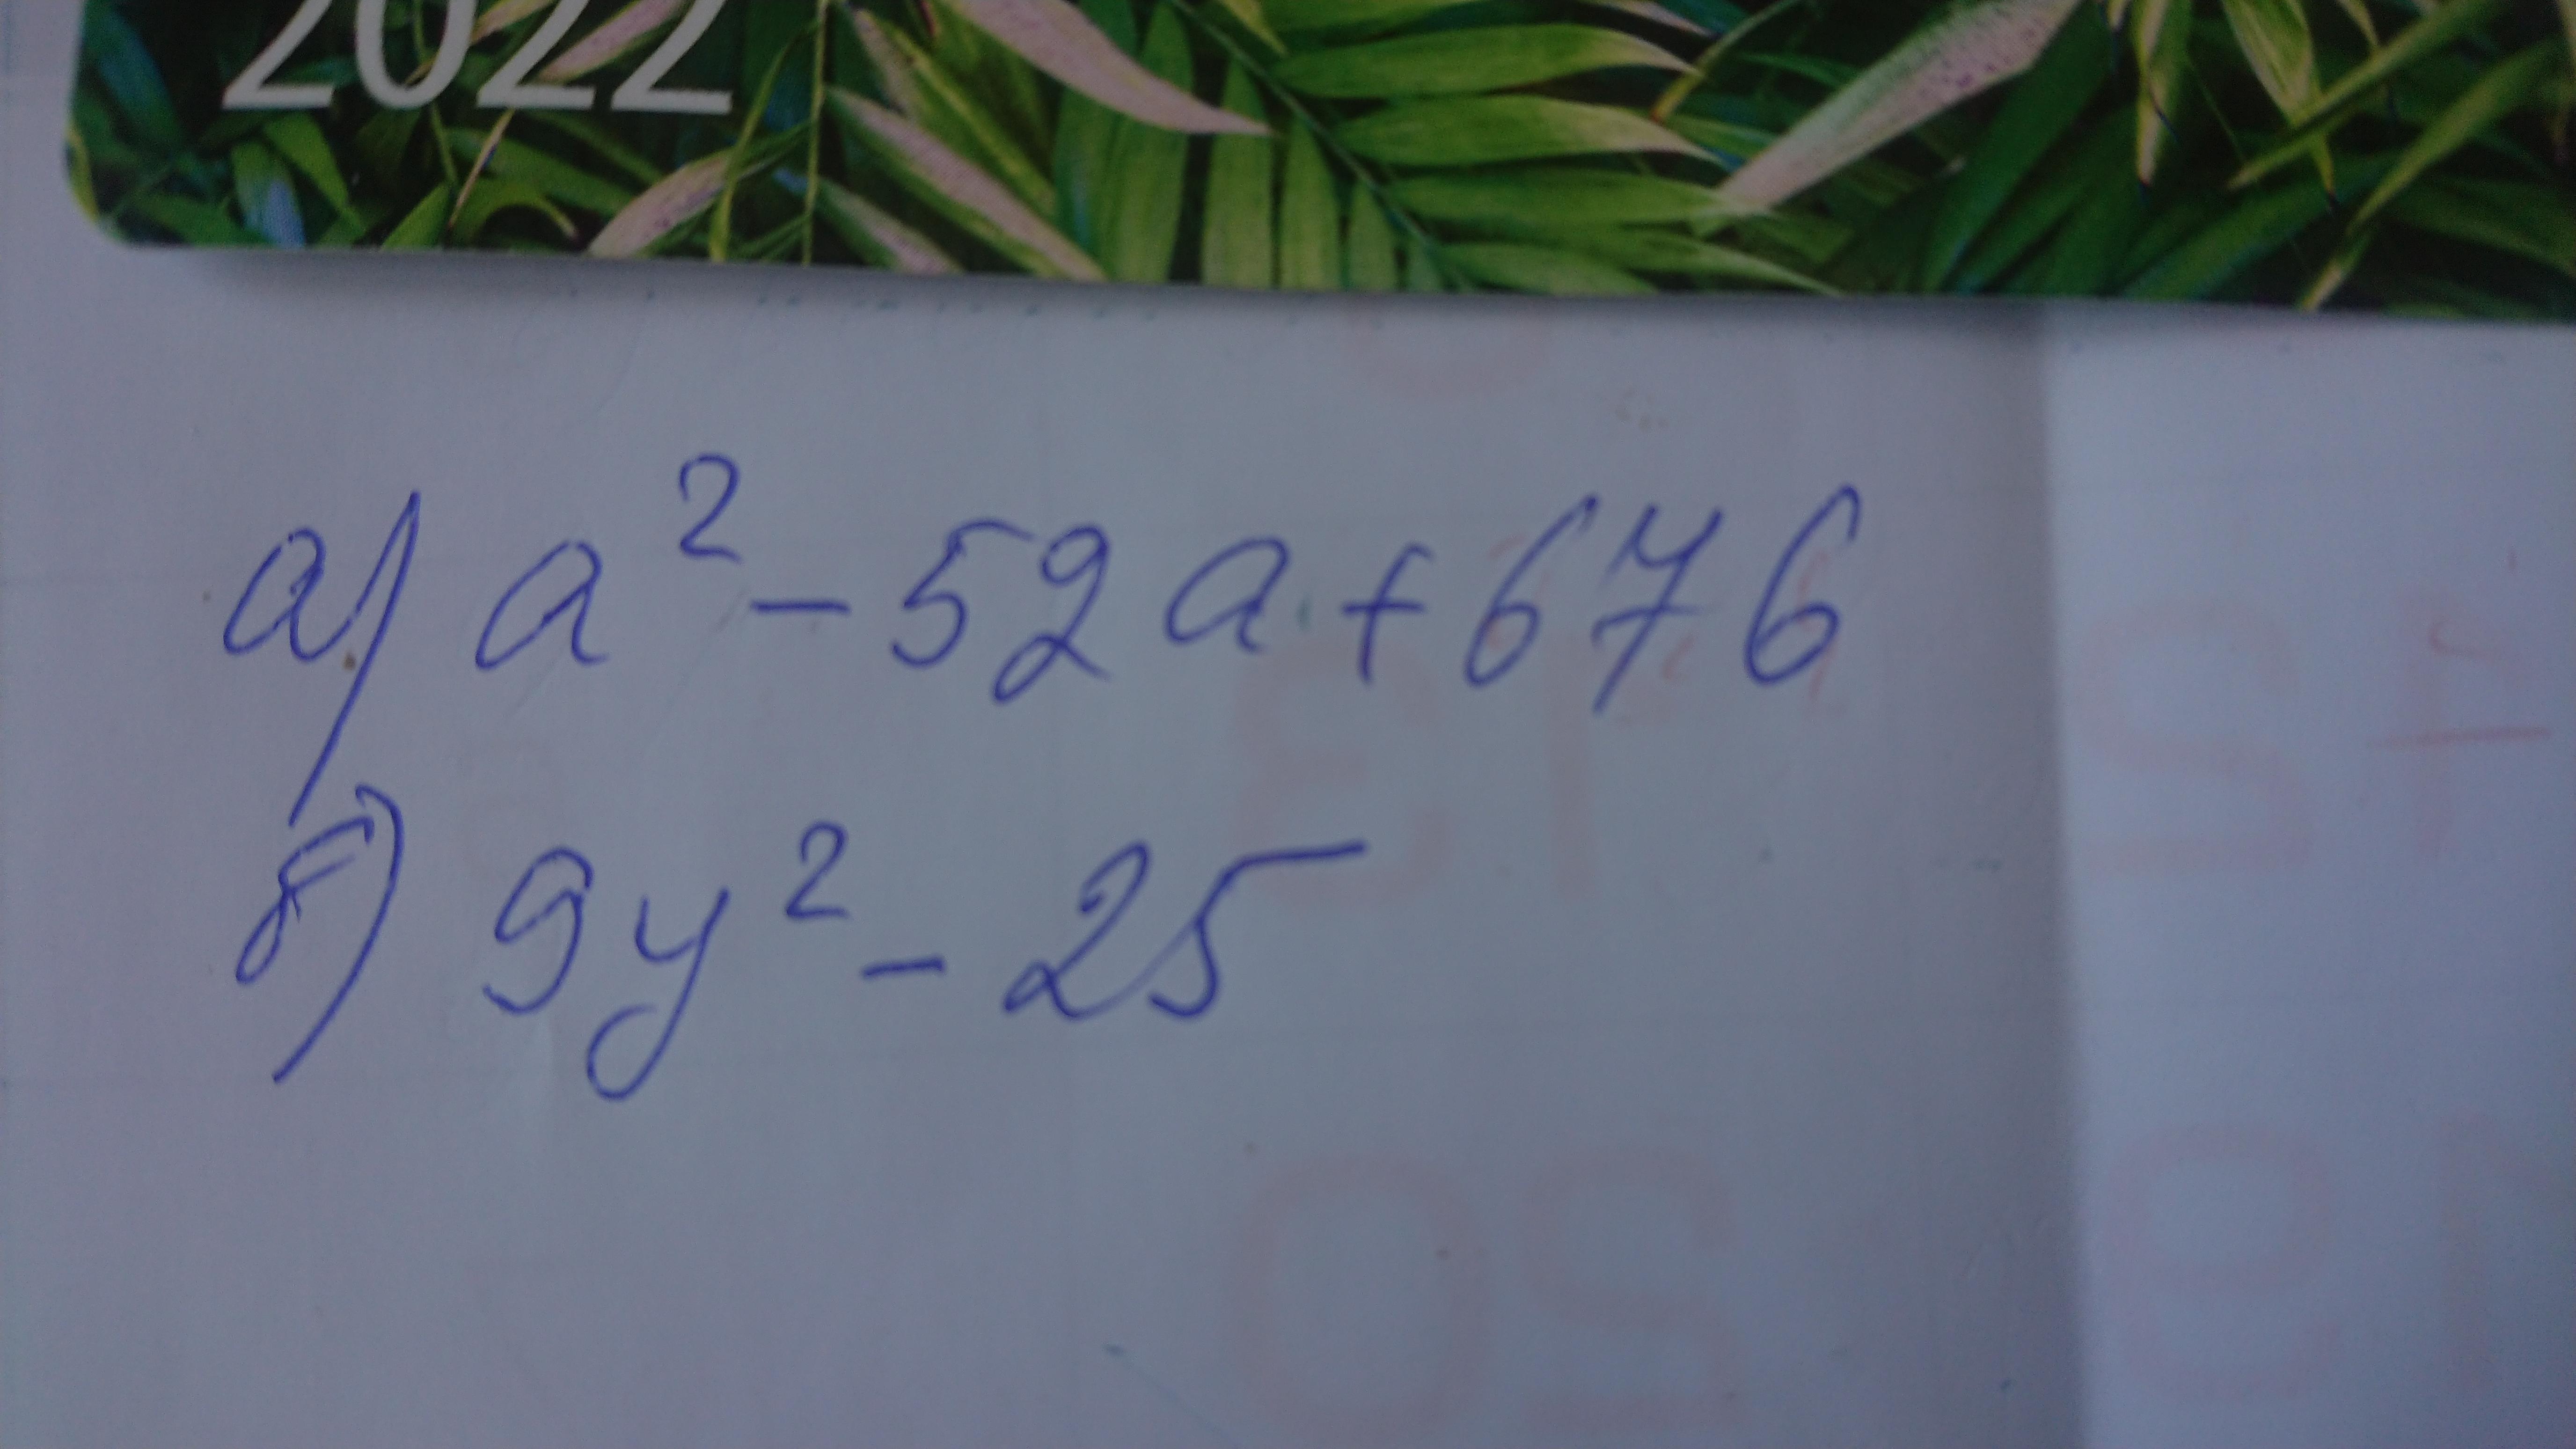 2022
а) a² - 52a + 676
б) 9y² - 25